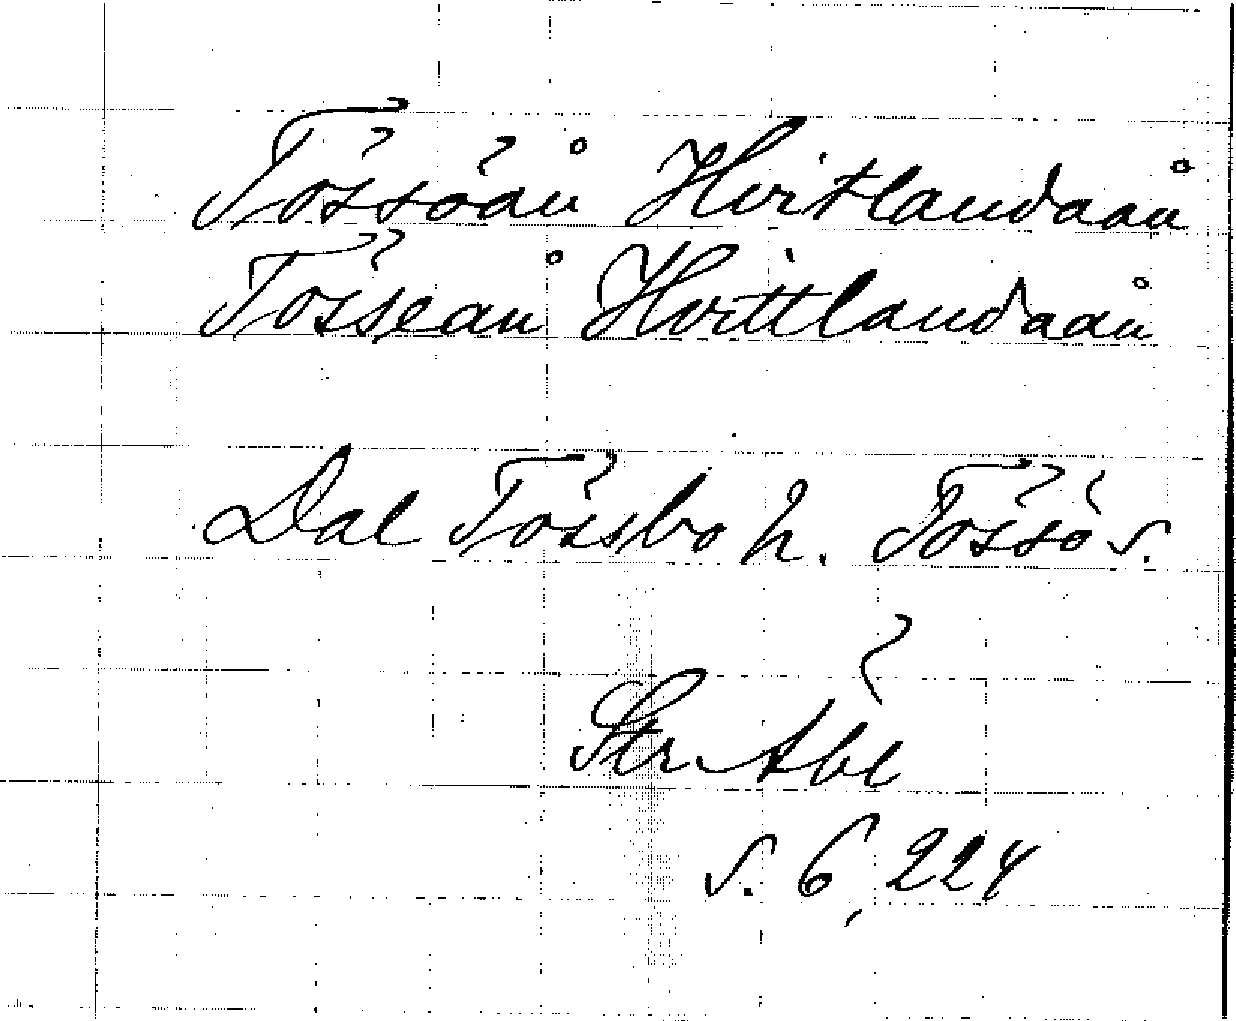 Tössöån Hvitlandaån
Tösseån Hvittlandaån
Dal Tössbo h. Tössö s.
Str Abl
s. 6, 224